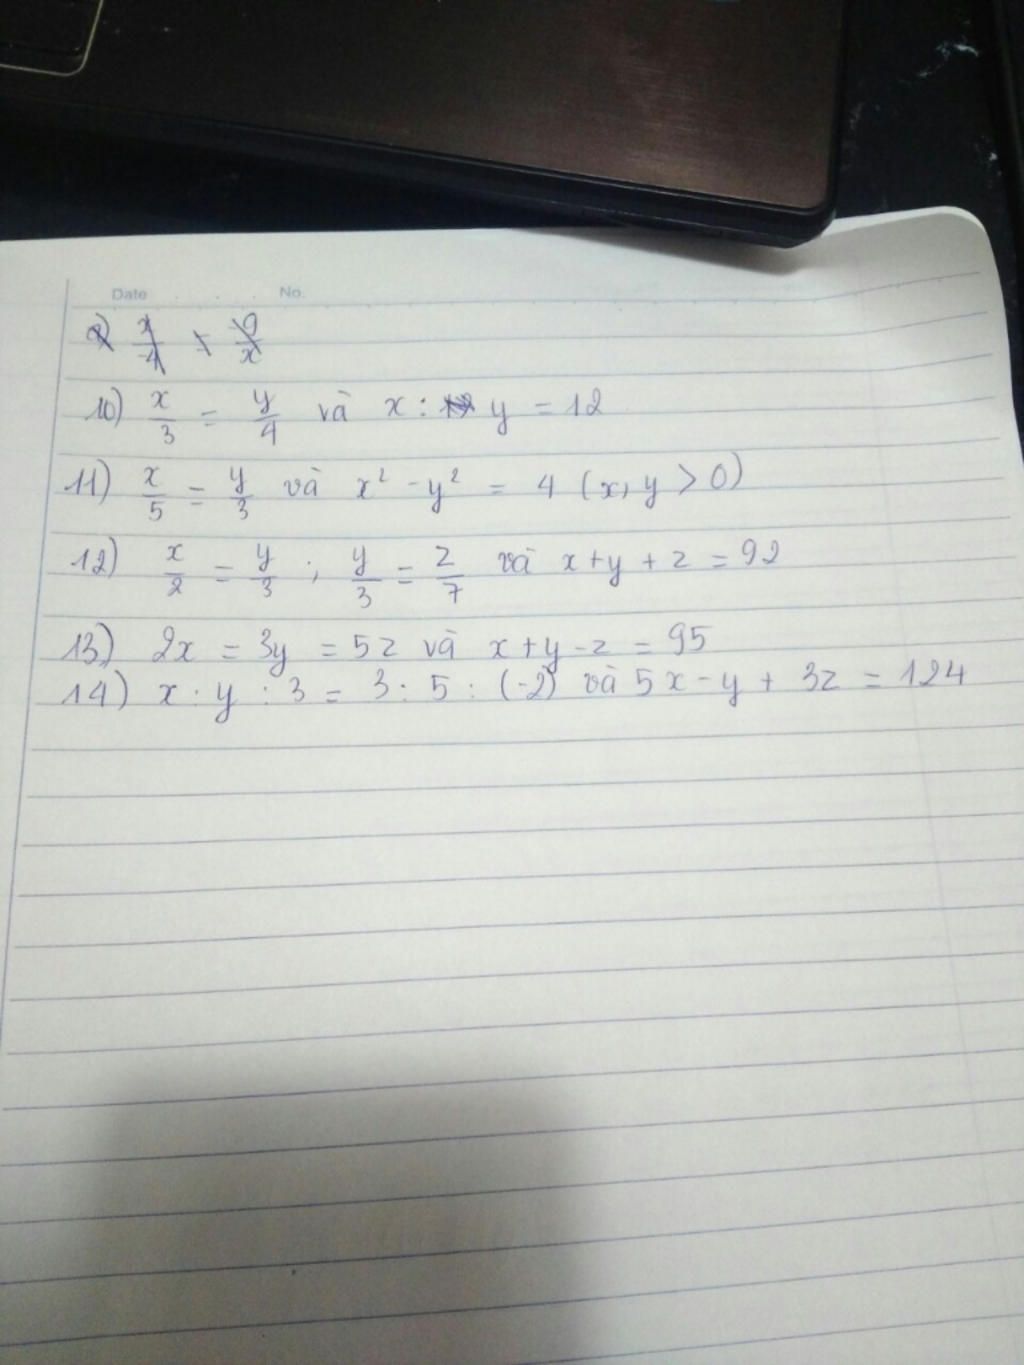 Date No.
10) x/3 = y/4 và x : y = 12
11) x/5 = y/3 và x² - y² = 4 (x, y > 0)
12) x/2 = y/3 ; y/3 = z/7 và x + y + z = 92
13) 2x = 3y = 5z và x + y - z = 95
14) x : y : 3 = 3 : 5 : (-2) và 5x - y + 3z = 124